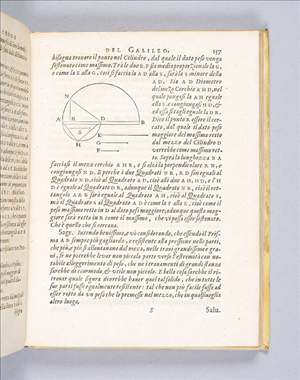 DEL GALILEO. 137
bisogna trouare il punto nel Cilindro, dal quale il dato peso venga
sostenuto come massimo. Trà le due E. F sia media proporzionale la G,
e come la E alla G, così si faccia la AD alla S, sarà la S minore della
AD. Sia AD Diametro
del mezo Cerchio AHD, nel
quale pongasi la AH eguale
alla S, e congiungasi HD, &
ad essa si tagli eguale la DR.
Dico il punto R essere il cer-
cato, dal quale il dato peso
maggiore del massimo retto
dal mezzo del Cilindro D
verrebbe come massimo ret-
to. Sopra la lunghezza BA
facciasi il mezo cerchio ANB, e si alzi la perpendicolare RN, e
congiungasi ND. E perche i due Quadrati NR, RD son eguali al
Quadrato ND, cioè al Quadrato AD, cioè alli due AH, HD, e l'H
D è eguale al Quadrato DR, adunque il Quadrato NR, cioè il ret-
tangolo ARB sarà eguale al Quadrato AH, cioè al Quadrato S,
mà il Quadrato S al Quadrato AD è come la F alla E, cioè come il
peso massimo retto in D al dato peso maggiore; adunque questo mag-
giore sarà retto in R come il massimo, che vi possa esser sostenuto.
Che è quello che si cercaua.
Sagr. Intendo benissimo, e vò considerando, che essendo il Prisma
AB sempre più gagliardo, e resistente alla pressione nelle parti,
che più, e più si allontanano dal mezo, nelle traui grandissime e gra-
ui, se ne potrebbe leuar non piccola parte verso l'estremità con no-
tabile alleggerimento di peso, che ne i trauamenti di grandi stanze
sarebbe di commodo, & vtile non piccolo. E bella cosa sarebbe il ri-
trouar quale figura dourebbe hauer quel tal solido, che in tutte le
sue parti fusse egualmente resistente: tal che non più facile fusse ad
esser rotto da vn peso che lo premesse nel mezzo, che in qualsiuoglia
altro luogo.
S Salu.
N
H
A R D B
S
E
G
F